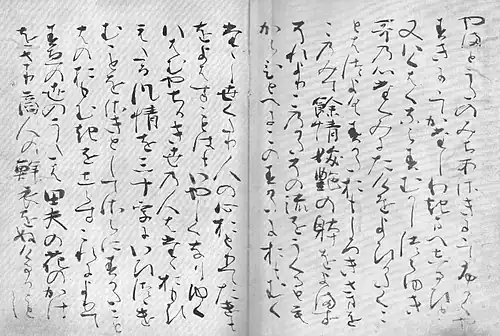 やまとうたのみちあさきににてふかくや
すきににてかたしわきまへしるひと
又いくはくならすむかしつらゆき
哥乃心たくみにたけをよひかたく
ことはつよくすかたおもしろきさまを
このみて餘情妖艶の躰をよます
それよりこのかたその流をうくるとも
からひとへにこのすかたにおもむく
たゝし世くたり人の心おとりてたけも
をよはすことはもいやしくなりゆく
いはむやちかき世乃人はたゝおもひ
えたる風情を三十字にいひつゝけ
むことをさきとしてさらにすかたこと
はのおもむきをしらすこれによりて
すゑの世のうたは田夫の花のかけ
をさり商人の鮮衣をぬけるかことし